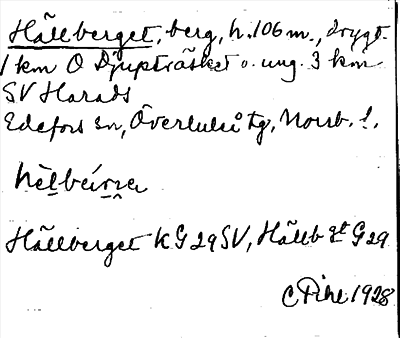 Hällberget, berg, h. 106 m., drygt
1 km O Djupträsket o. ung. 3 km
SV Harads
Edefors sn, Överluleå tg, Norrb. l.
Hällberget K G 29 SV, Hällb et G 29
C Pihl 1928